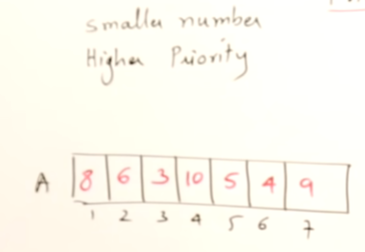 smaller number
Higher Priority
A 8 6 3 10 5 4 9
1 2 3 4 5 6 7